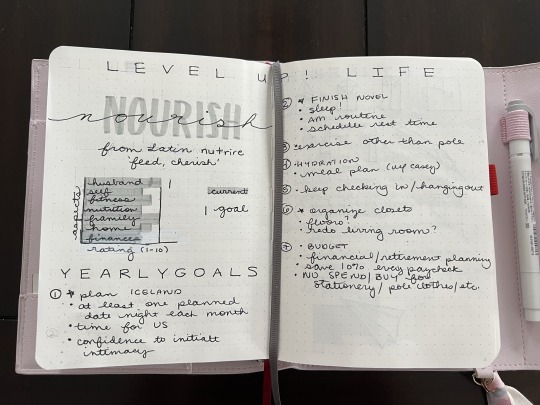 LEVEL UP! LIFE
NOURISH
nourish
from Latin nutrire
'feed, cherish'
aspects
husband
self
fitness
nutrition
family
home
finances
rating (1-10)
current
goal
YEARLY GOALS
① * plan ICELAND
• at least one planned
date night each month
• time for US
• confidence to initiate
intimacy
② * FINISH NOVEL
• sleep!
• AM routine
• schedule rest time
③ exercise other than pole
④ • HYDRATION
• meal plan (w/ casey)
⑤ • keep checking in/hanging out
⑥ * organize closets
• floors!
• redo living room?
⑦ • BUDGET
• financial/retirement planning
• save 10% every paycheck
• NO SPEND/BUY for
stationery/pole clothes/etc.